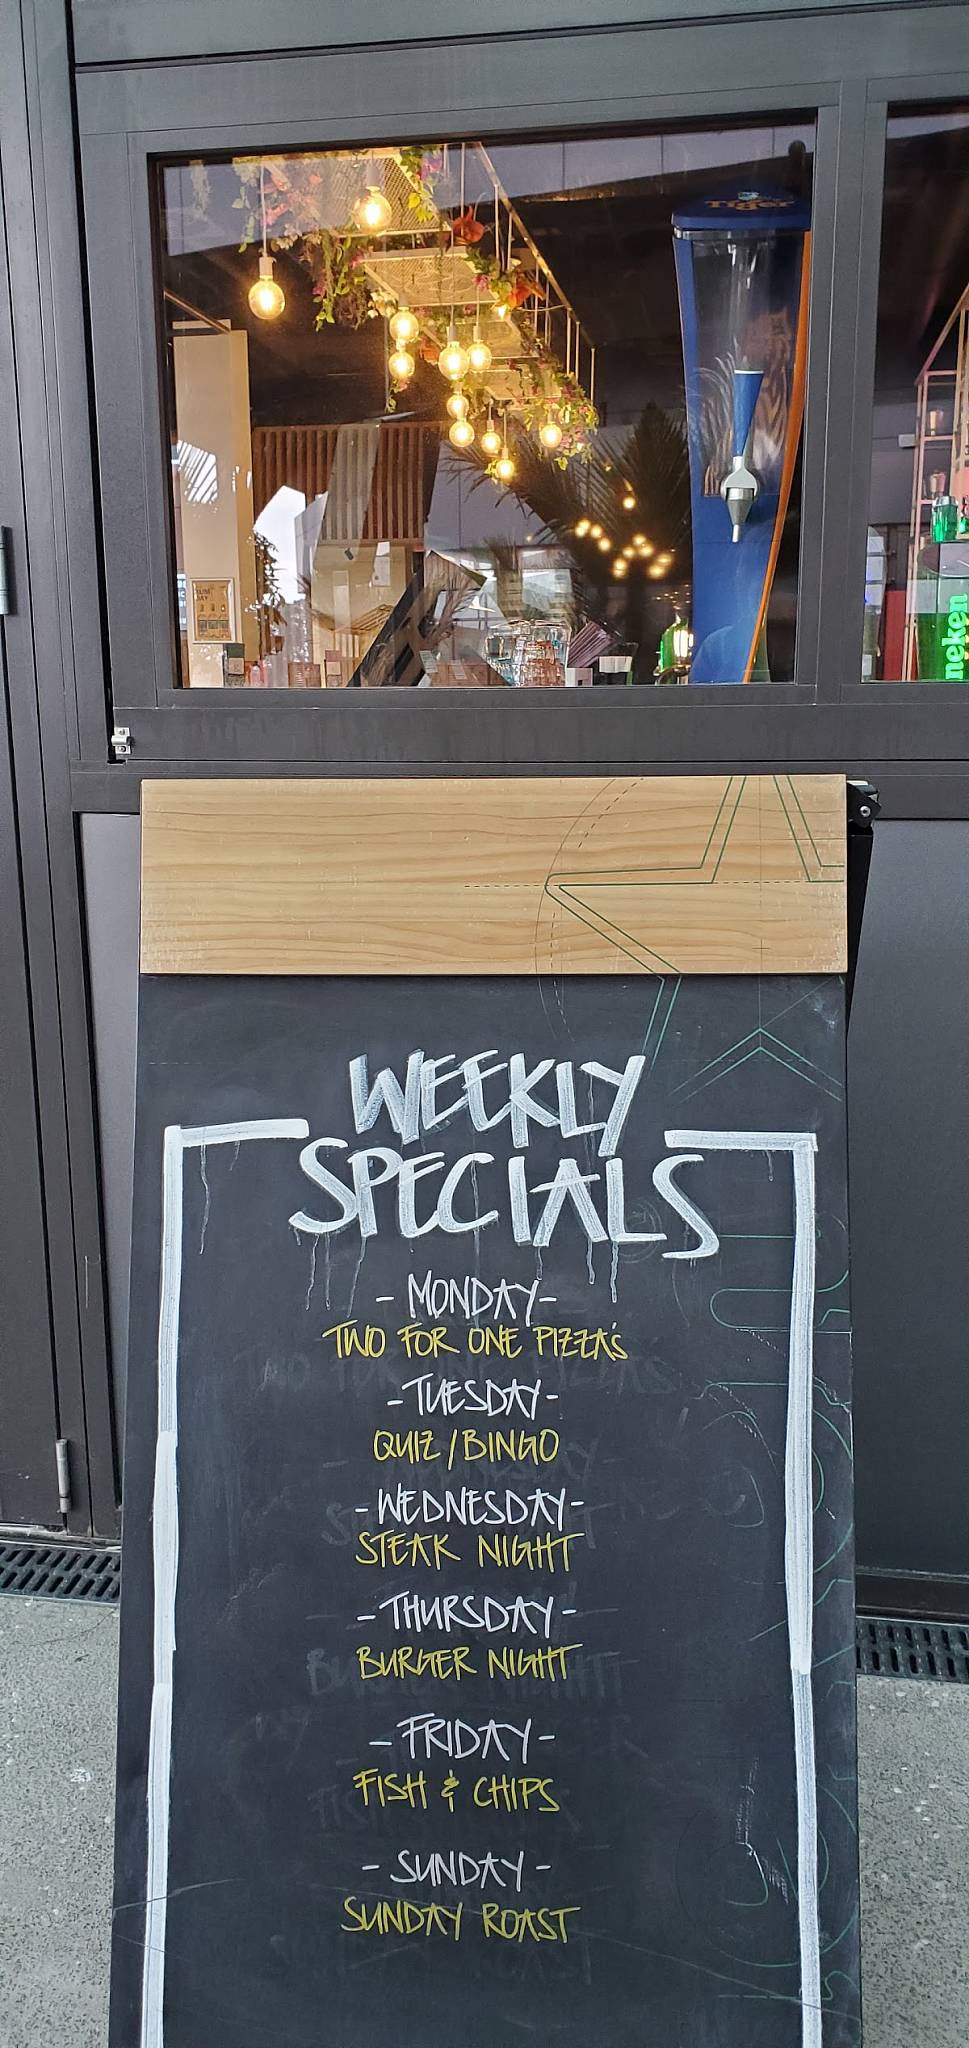 Tiger
neken
WEEKLY
SPECIALS
- MONDAY-
TWO FOR ONE PIZZA'S
-TUESDAY-
QUIZ/BINGO
-WEDNESDAY-
STEAK NIGHT
-THURSDAY-
BURGER NIGHT
- FRIDAY-
FISH & CHIPS
- SUNDAY -
SUNDAY ROAST